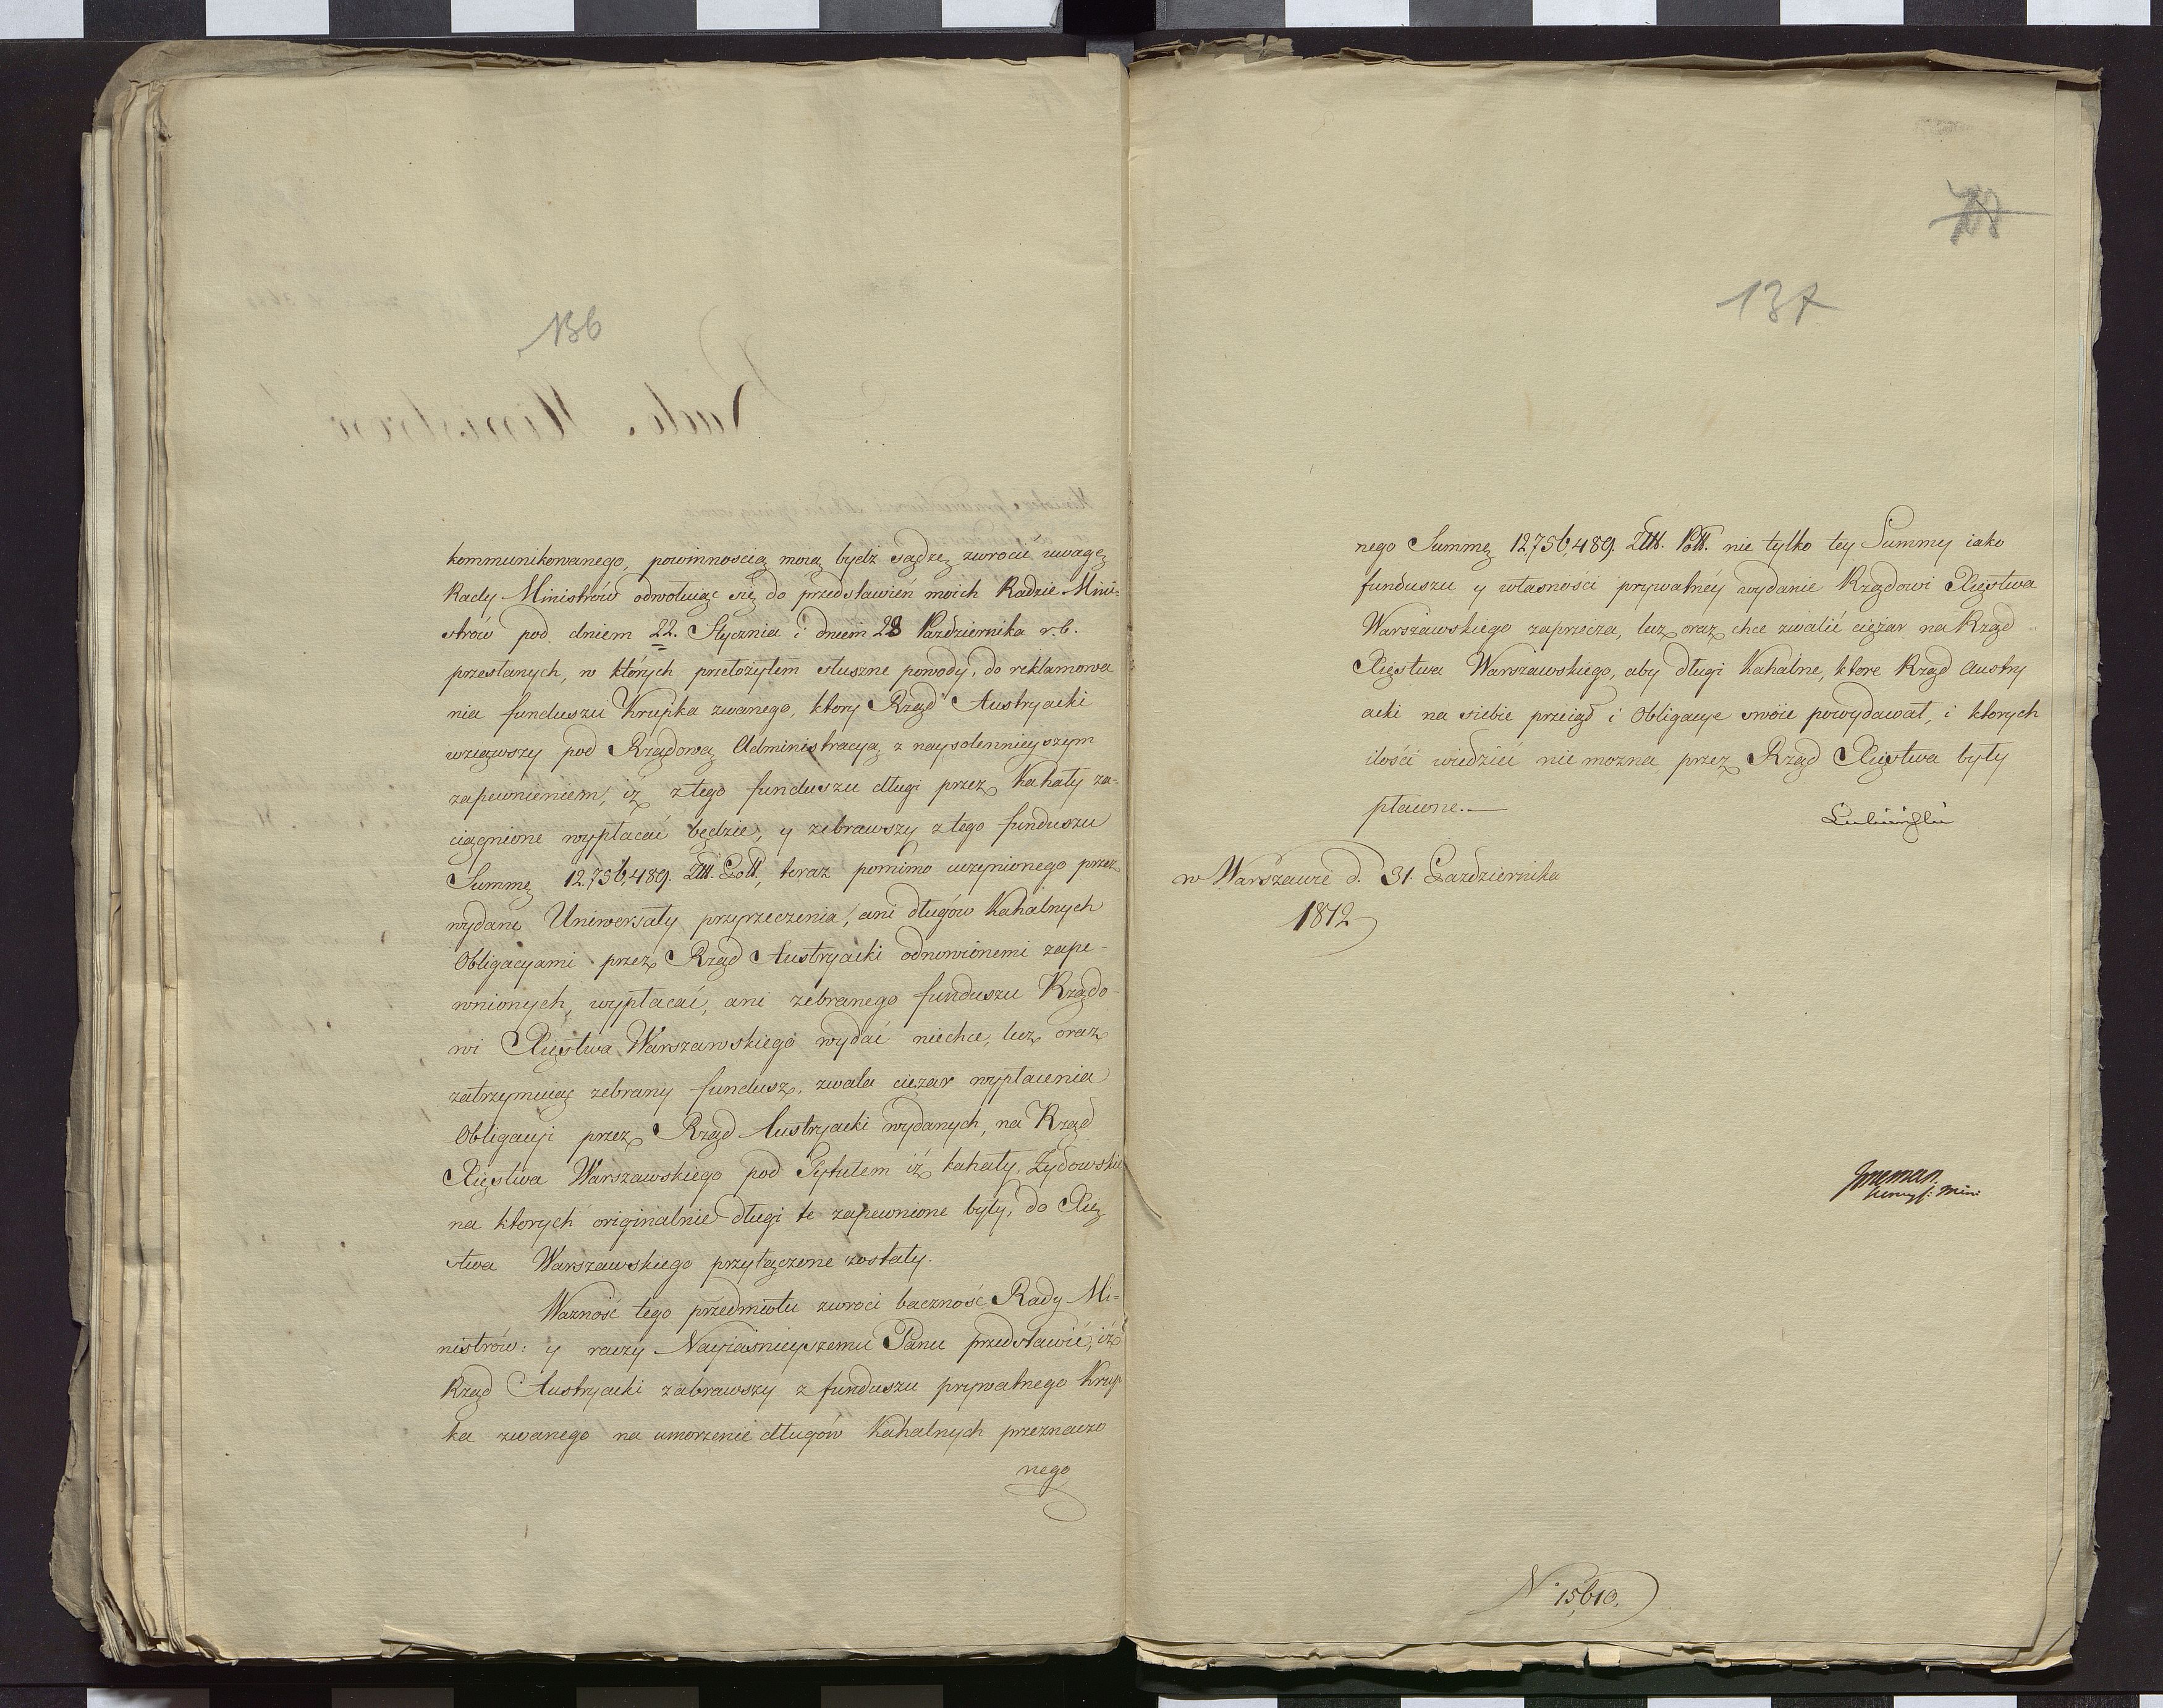 136
kommunikowanego, powinnoscią moią bydź sądzę zwrocić uwagę
Rady Ministrów odwołuiąc się do przedstawień moich Radzie Mini-
strów pod dniem 22. Stycznia i dniem 28 Pazdziernika r.b.
przesłanych, w których przełożyłem słuszne powody, do reklamowa
nia funduszu Krupka zwanego, ktory Rząd Austryacki
wziąwszy pod Rządową Administracyą z naysolennieyszym
zapewnieniem, iż z tego funduszu długi przez Kahały za-
ciągnione wypłacać będzie, y zebrawszy z tego funduszu
Summę 12,756,489. Złłł. Poll., teraz pomimo uczynionego przez
wydane Uniwersały przyrzeczenia, ani długów Kahalnych
Obligacyami przez Rząd Austryacki odnowionemi zape-
wnionych, wypłacać, ani zebranego funduszu Rządo-
wi Xięstwa Warszawskiego wydać niechce, lecz oraz
zatrzymuiąc zebrany fundusz, zwala ciężar wypłacenia
Obligacyi przez Rząd Austryacki wydanych, na Rząd
Xięstwa Warszawskiego pod Tytułem iż kahały Żydowskie
na ktorych originalnie długi te zapewnione były, do Xię
stwa Warszawskiego przyłączone zostały.
Ważność tego przedmiotu zwroci baczność Rady Mi-
nistrów: y raczy Nayiaśnieyszemu Panu przedstawić, iż
Rząd Austryacki zabrawszy z funduszu prywatnego Krup
ka zwanego na umorzenie długów Kahalnych przeznaczo
nego
137
nego Summę 12,756,489. Złłł. Poll. nie tylko tey Summy iako
funduszu y własności prywatnéy wydanie Rządowi Xięstwa
Warszawskiego zaprzecza, lecz oraz chce zwalić ciężar na Rząd
Xięstwa Warszawskiego, aby długi Kahalne, ktore Rząd Austry
acki na siebie przeiął i Obligacye swoie powydawał, i ktorych
ilości wiedzieć nie mozna, przez Rząd Xięstwa były
płacone.—
Lubieński
w Warszawie d. 31. Pazdziernika
1812
No 15,610.